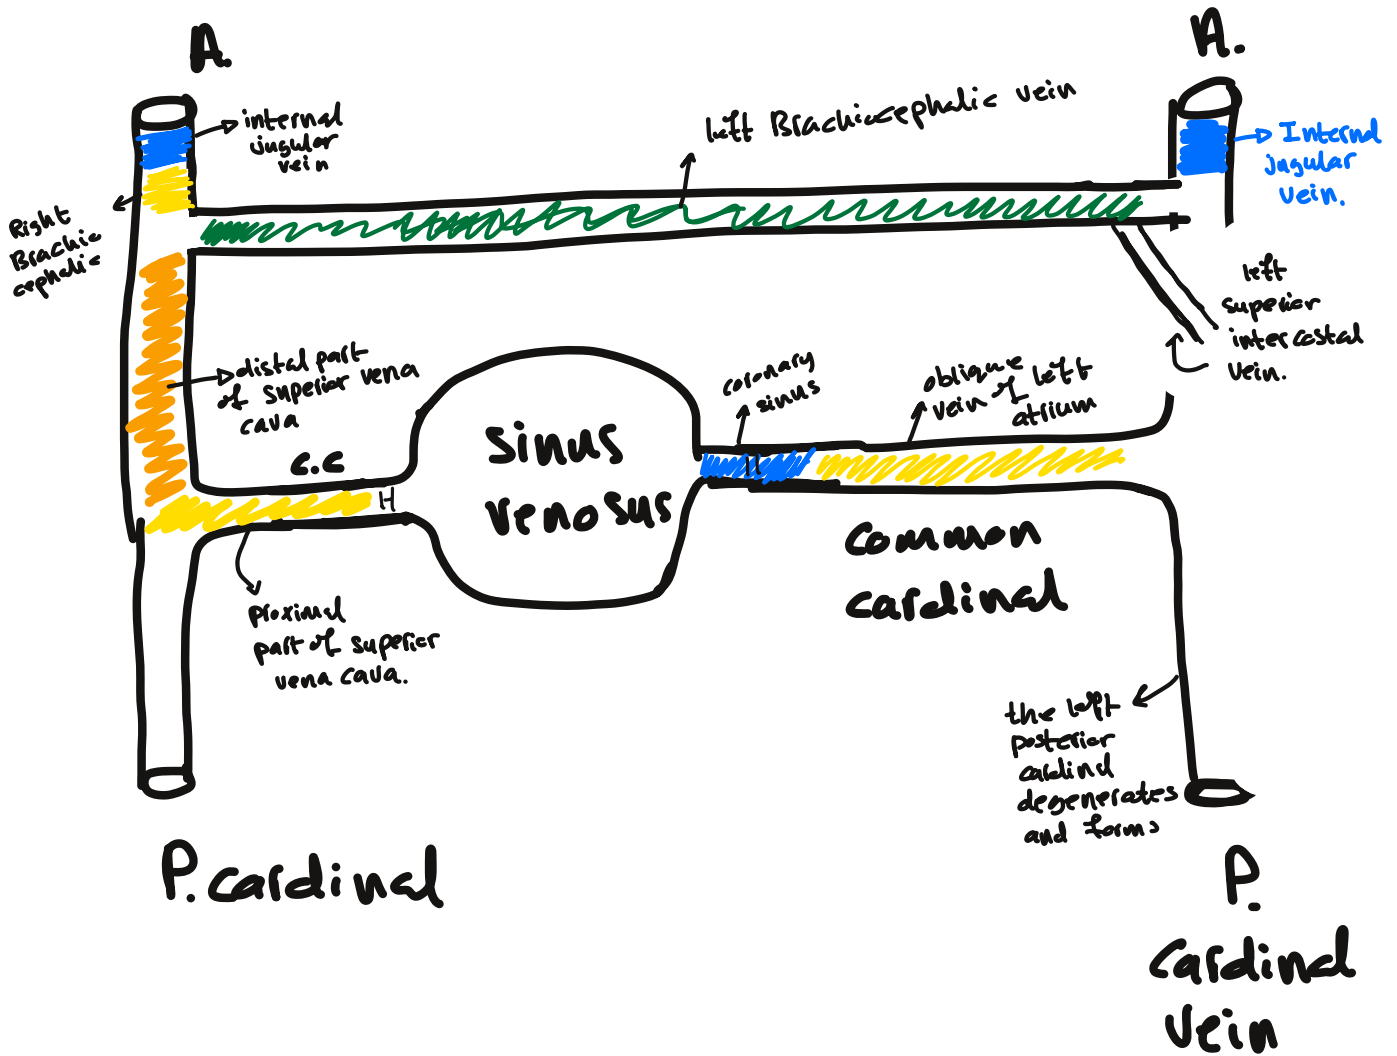 A.
A.
internal
jugular
vein
left Brachiocephalic vein
Internal
jugular
vein.
Right
Brachio
cephalic
left
superior
intercostal
vein.
distal part
of superior vena
cava
coronary
sinus
oblique
vein of left
atrium
c.c
sinus
venosus
H
common
cardinal
proximal
part of superior
vena cava.
the left
posterior
cardinal
degenerates
and forms
P. cardinal
P.
cardinal
vein